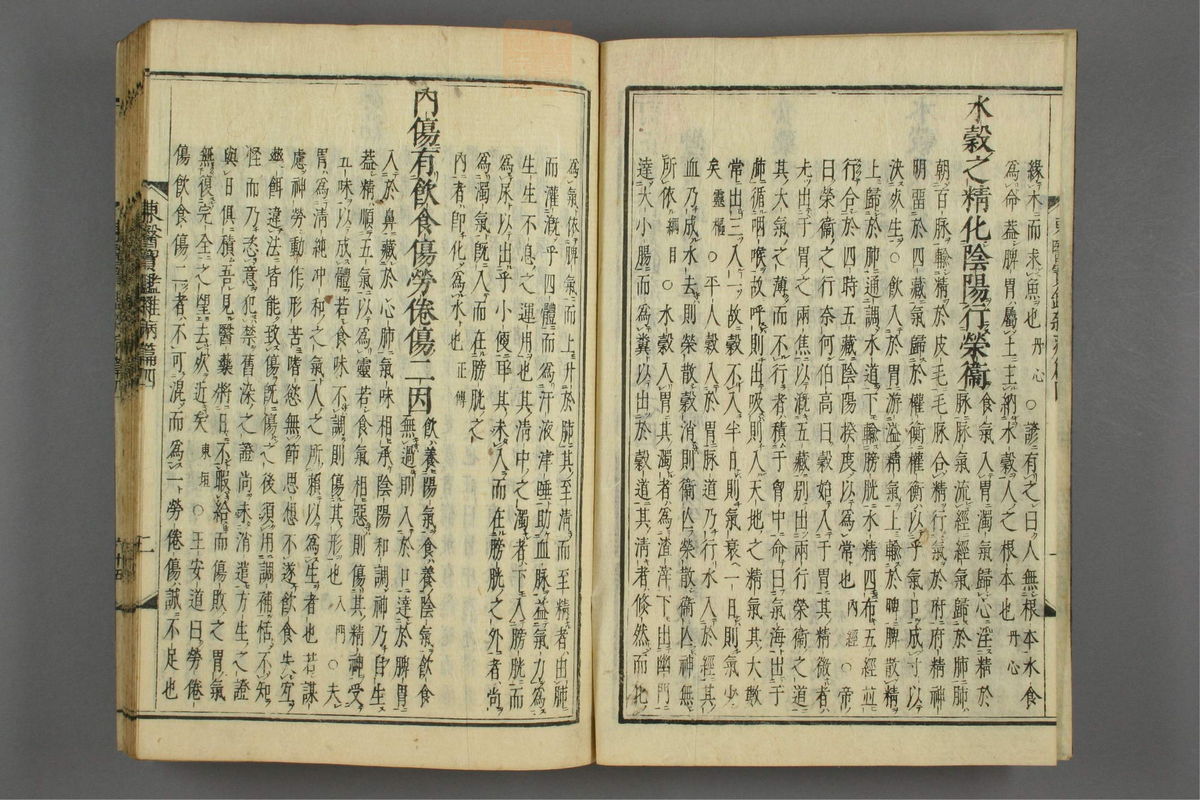 緣木而求魚也丹心○諺有之曰人無根本水食
爲命蓋脾胃屬土主納水穀人之根本也丹心
水穀之精化陰陽行榮衞食氣入胃濁氣歸心淫精於
脉脉氣流經經氣歸於肺肺
朝百脉輸精於皮毛毛脉合精行氣於府府精神
明留於四藏氣歸於權衡權衡以平氣口成寸以
決死生○飮入於胃游溢精氣上輸於脾脾散精
上歸於肺通調水道下輸膀胱水精四布五經並
行合於四時五藏陰陽揆度以爲常也內經○帝
曰榮衞之行奈何伯高曰穀始入于胃其精微者
先出于胃之兩焦以漑五藏別出兩行榮衞之道
其大氣之薄而不行者積于胷中命曰氣海出于
肺循咽喉故呼則出吸則入天地之精氣其大數
常出三入一故穀不入半日則氣衰一日則氣少
矣靈樞○平人穀入於胃脉道乃行水入於經其
血乃成水去則榮散穀消則衞亡榮散衞亡神無
所依綱目○水穀入胃其濁者爲渣滓下出幽門
達大小腸而爲糞以出於穀道其淸者倏然而化
爲氣依脾氣而上升於肺其至淸而至精者由肺
而灌漑乎四體而爲汗液津唾助血脉益氣力爲
生生不息之運用也其淸中之濁者下入膀胱而
爲尿以出乎小便耳其未入而在膀胱之外者尙
爲濁氣旣入而在膀胱之
內者卽化爲水也正傳
內傷有飮食傷勞倦傷二因飮養陽氣食養陰氣飮食
無過則入於口達於脾胃
入於鼻藏於心肺氣味相承陰陽和調神乃自生
蓋精順五氣以爲靈若食氣相惡則傷其精神受
五味以成體若食味不調則傷其形也入門○夫
胃爲淸純冲和之氣人之所賴以爲生者也若謀
慮神勞動作形苦嗜慾無節思想不遂飮食失宜
藥餌違法皆能致傷旣傷之後須用調補恬不知
怪而乃恣意犯禁舊染之證尙未消遣方生之證
與日俱積吾見醫藥將日不暇給而傷敗之胃氣
無復完全之望去死近矣東垣○王安道曰勞倦
傷飮食傷二者不可混而爲一勞倦傷誠不足也
東醫寶鑑雜病篇四